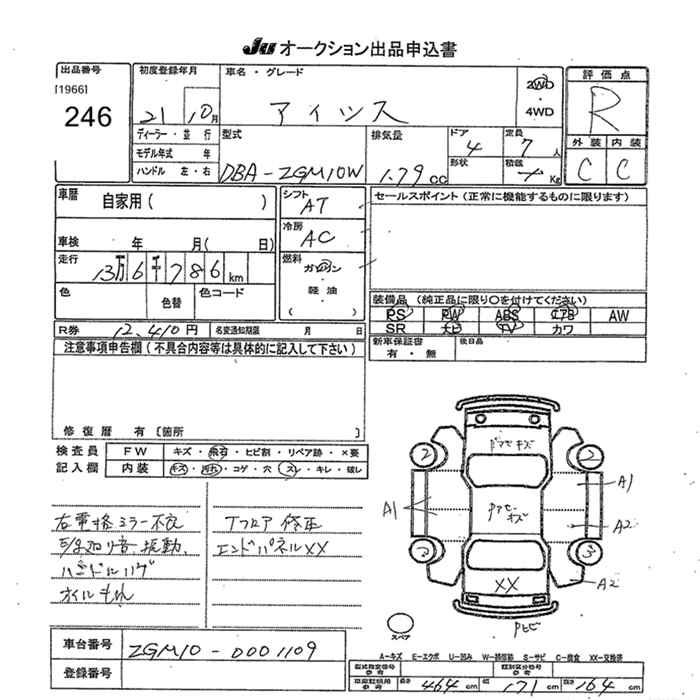 JU オークション出品申込書
出品番号
[1966]
246
初度登録年月
21 10月
車名・グレード
アイシス
2WD
・
4WD
評価点
R
外装 内装
C C
ディーラー・並行
モデル年式 年
ハンドル 左・右
型式
DBA-ZGM10W
排気量
1.79 cc
ドア
4
定員
7人
形状
積載
Kg
車歴
自家用( )
車検 年 月( 日)
走行
13万6千786km
色
色替
色コード
シフト
AT
冷房
AC
燃料
ガソリン
・
軽油
( )
セールスポイント(正常に機能するものに限ります)
装備品(純正品に限り○を付けてください)
PS PW ABS エアB AW
SR ナビ TV カワ
新車保証書
有・無
後日品
R券 12,410円
名変通知期限 月 日
注意事項申告欄(不具合内容等は具体的に記入して下さい)
修復歴 有[箇所
検査員
記入欄
FW キズ・飛石・ヒビ割・リペア跡・×要
内装 キズ・汚れ・コゲ・穴・スレ・キレ・破レ
右電格ミラー不良
振動、
ハンドルハゲ
オイルもれ
Tフロア修正
エンドパネルXX
車台番号 ZGM10-0001109
登録番号
2
2
2
3
A1
A1
A2
A2
XX
スペア
A-キズ E-エクボ U-凹み W-補修跡 S-サビ C-腐食 XX-交換済
型式指定番号
参考
類別区分番号
参考
車庫証明用
参考
長さ 464cm 幅 171cm 高さ 164cm